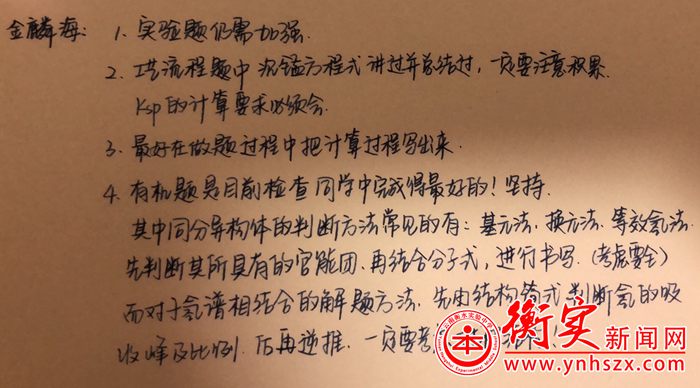 金麟海: 1. 实验题仍需加强.
2. 工艺流程题中 沉锰方程式 讲过并总结过, 一定要注意积累.
Ksp 的计算要求必须会.
3. 最好在做题过程中把计算过程写出来.
4. 有机题是目前检查同学中完成得最好的! 坚持.
其中同分异构体的判断方法常见的有: 基元法、换元法、等效氢法.
先判断其所具有的官能团. 再结合分子式, 进行书写. (考虑要全)
而对于氢谱相结合的解题方法. 先由结构简式 判断氢的吸
收峰及比例. 后再逆推. 一定要考
云南衡水实验中学
衡实新闻网
www.ynhszx.com